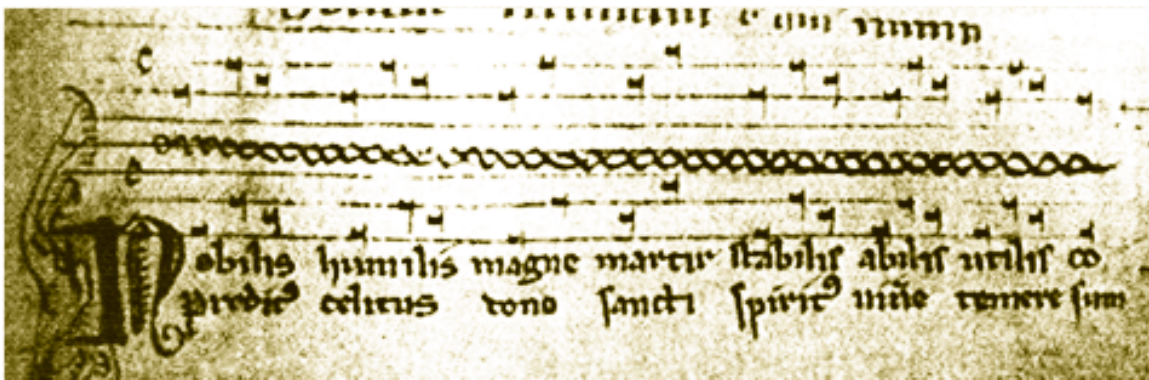 Nobilis humilis magne martir stabilis abilis utilis co
preditꝰ celitus dono sancti spiritꝰ uiūe temere sum